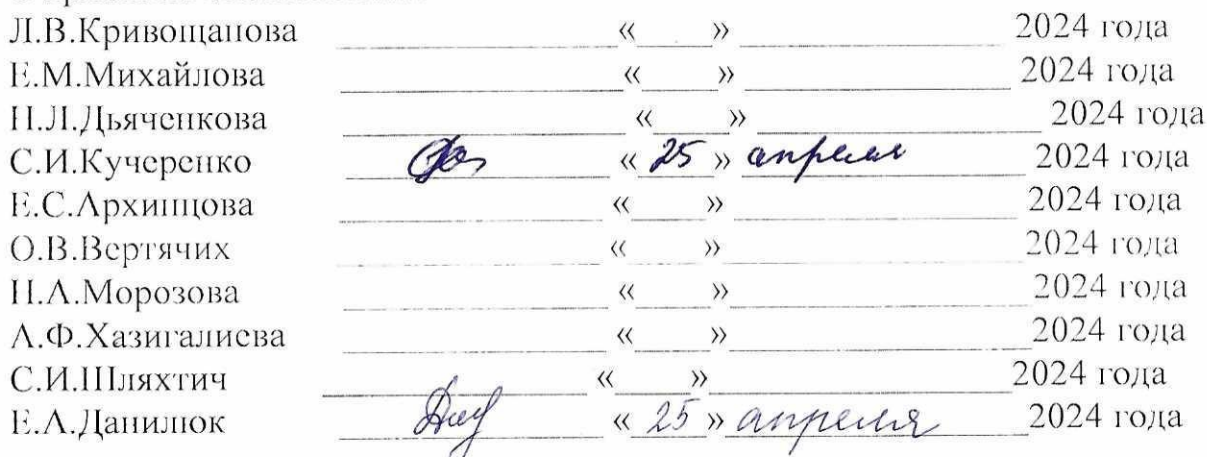 Л.В.Кривощапова «      » 2024 года
Е.М.Михайлова «      » 2024 года
Н.Л.Дьяченкова «      » 2024 года
С.И.Кучеренко « 25 » апреля 2024 года
Е.С.Архипцова «      » 2024 года
О.В.Вертячих «      » 2024 года
Н.А.Морозова «      » 2024 года
А.Ф.Хазигалиева «      » 2024 года
С.И.Шляхтич «      » 2024 года
Е.А.Данилюк « 25 » апреля 2024 года